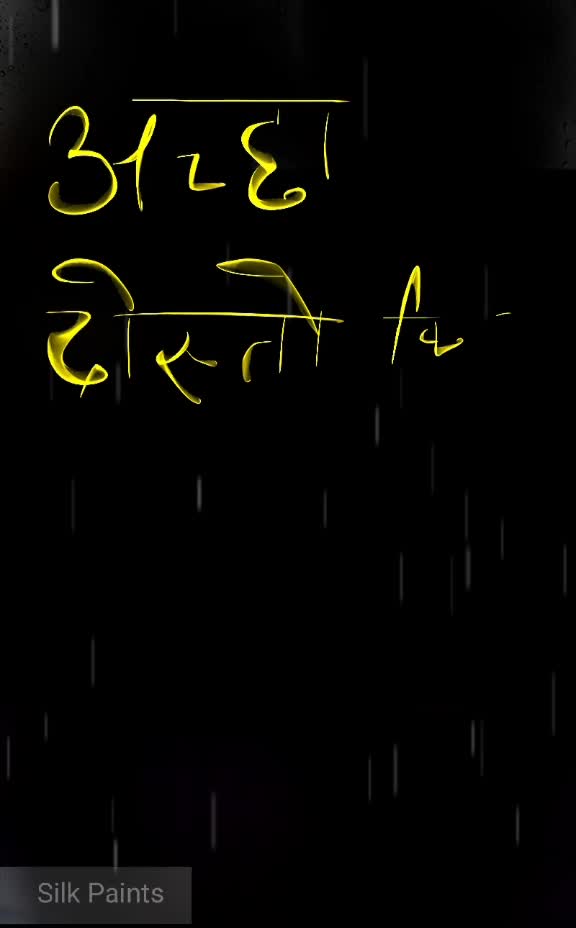 अच्छा
दोस्तो
Silk Paints